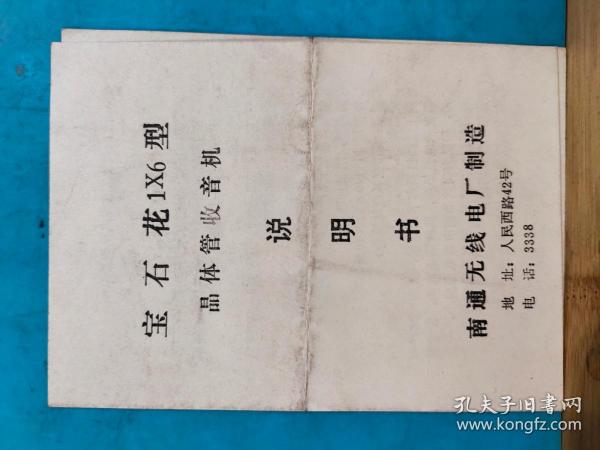 宝石花1X6型
晶体管收音机
说明书
南通无线电厂制造
地址：人民西路42号
电话：3338
孔夫子旧书网
www.kongfz.com